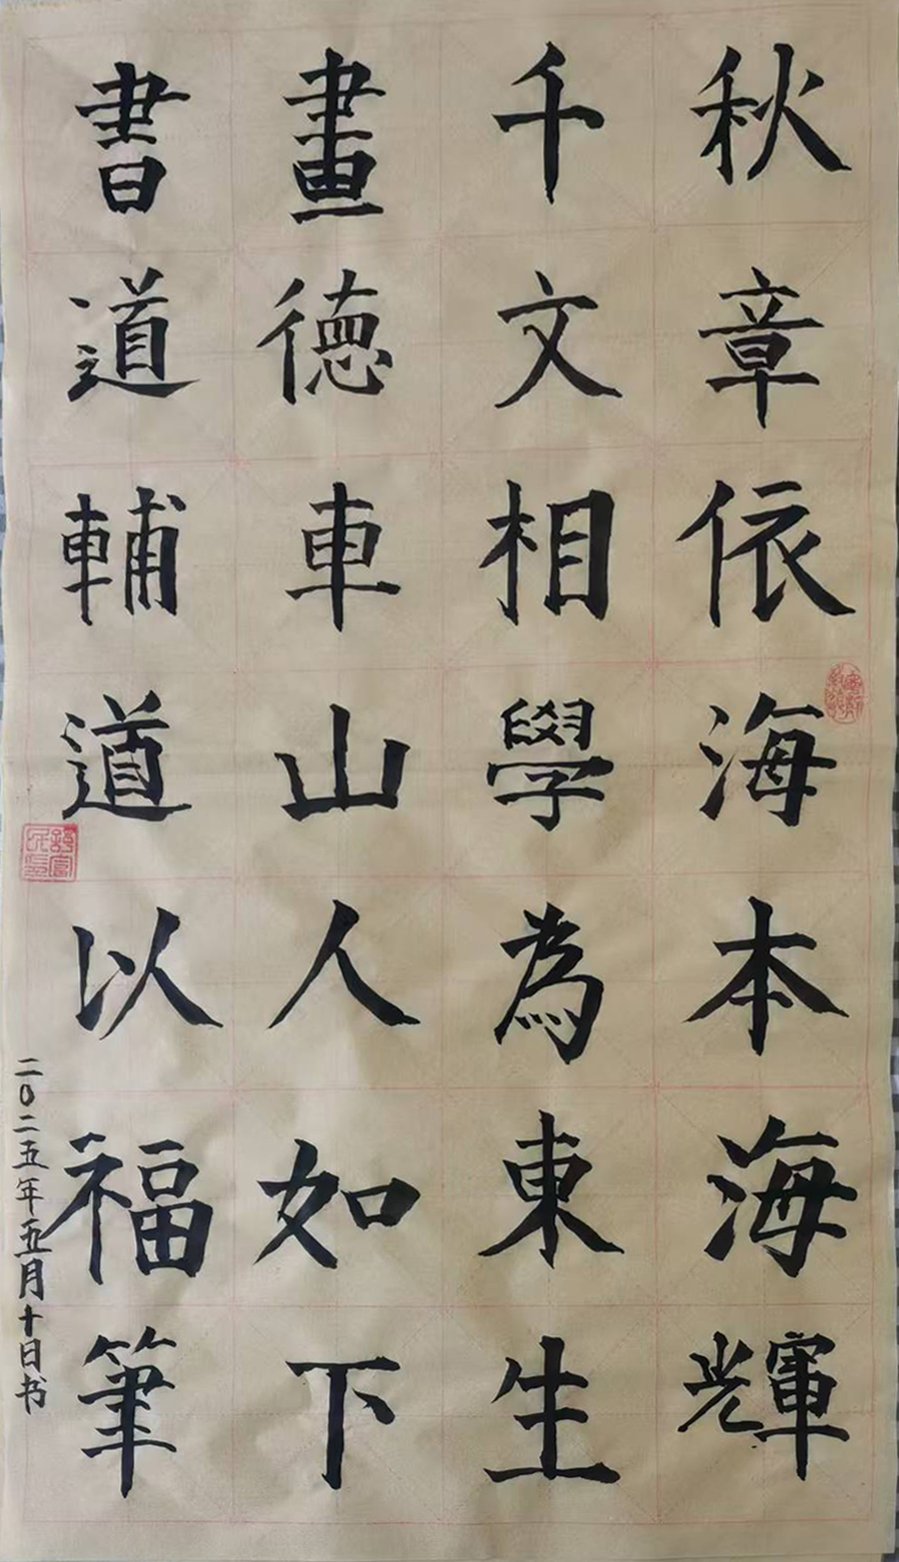 秋章依海本海輝
千文相學為東生
畫德車山人如下
書道輔道以福筆
二〇二五年五月十日书